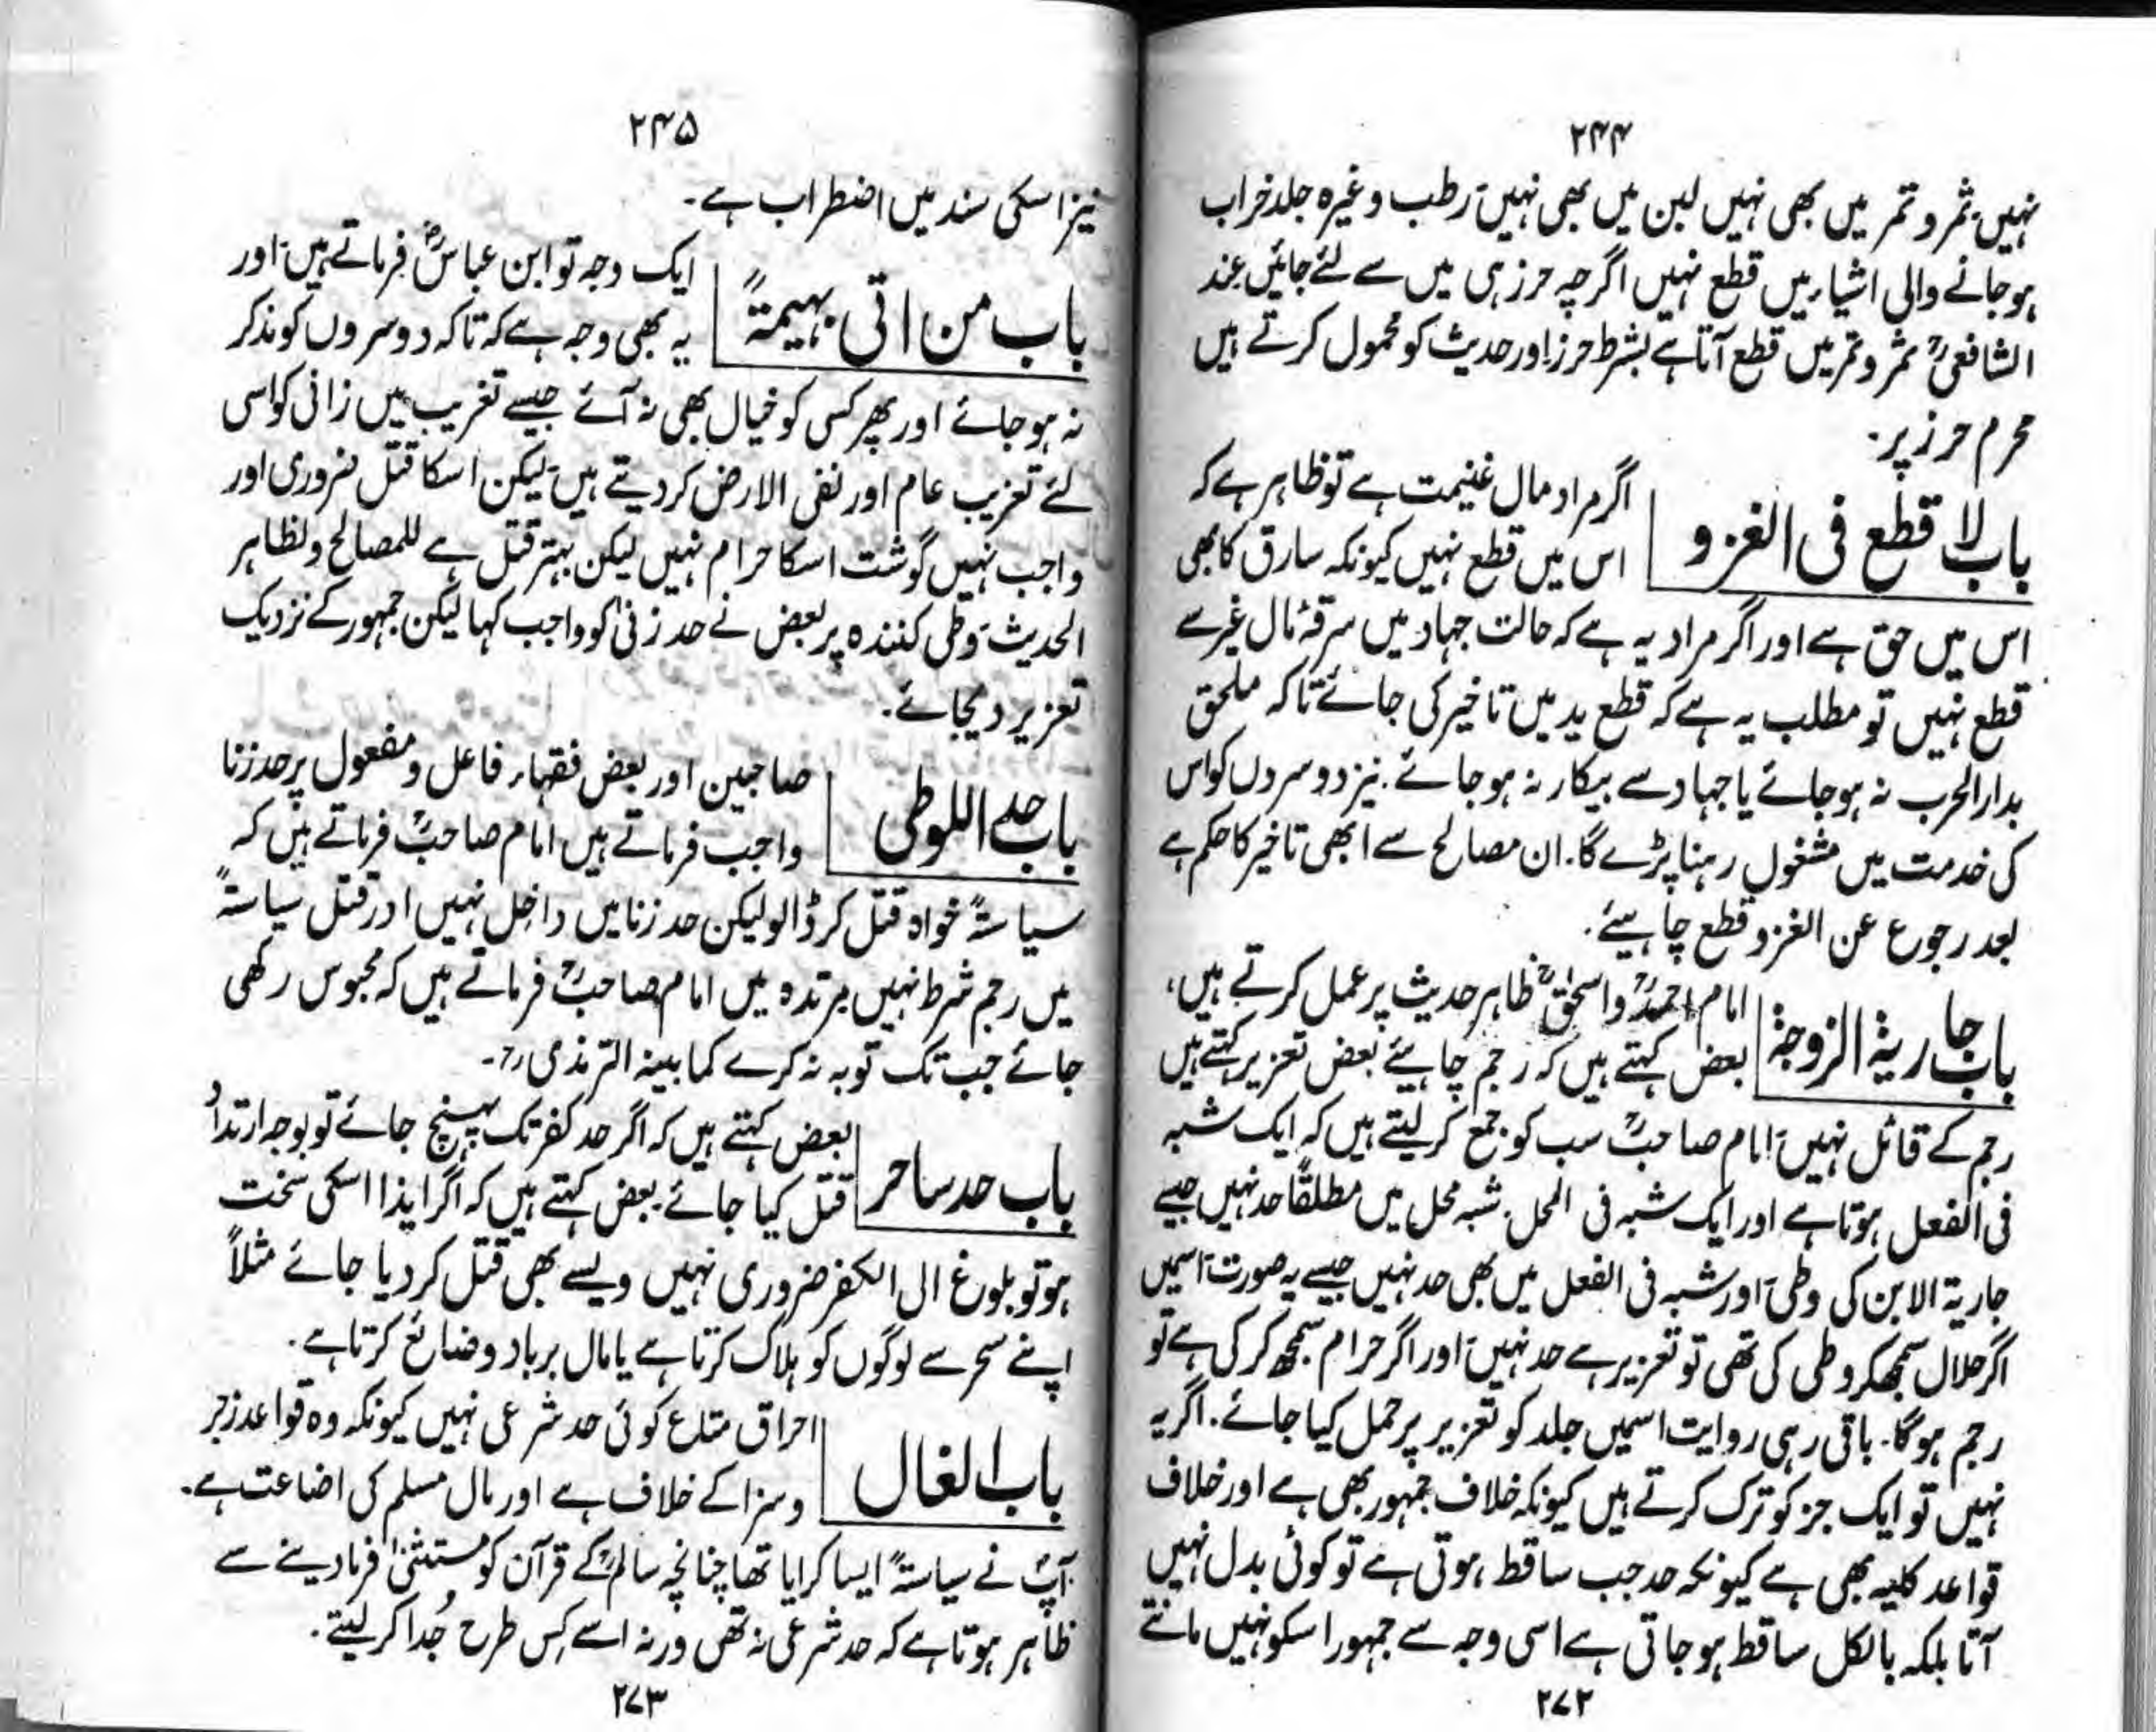 ۲۴۴
نہیں، ثمر و تمر میں بھی نہیں لبن میں بھی نہیں، رطب وغیرہ جلد خراب
ہوجانے والی اشیاء میں قطع نہیں اگرچہ حرز ہی میں سے لئے جائیں عند
الشافعیؒ ثمر و تمر میں قطع آتا ہے بشرط حرز اور حدیث کو محمول کرتے ہیں
محرم حرز پر۔
باب لا قطع فی الغزو
اگر مراد مال غنیمت ہے تو ظاہر ہے کہ
اس میں قطع نہیں کیونکہ سارق کا بھی
اس میں حق ہے اور اگر مراد یہ ہے کہ حالت جہاد میں سرقۂ مال غیر سے
قطع نہیں تو مطلب یہ ہے کہ قطع ید میں تاخیر کی جائے تاکہ ملحق
بدار الحرب نہ ہوجائے یا جہاد سے بیکار نہ ہوجائے۔ نیز دوسروں کو اس
کی خدمت میں مشغول رہنا پڑے گا۔ ان مصالح سے ابھی تاخیر کا حکم ہے
بعد رجوع عن الغزو قطع چاہیئے۔
باب جاریۃ الزوجۃ
امام احمدؒ و اسحٰقؒ ظاہر حدیث پر عمل کرتے ہیں،
بعض کہتے ہیں کہ رجم چاہیئے بعض تعزیر کہتے ہیں
رجم کے قائل نہیں، امام صاحبؒ سب کو جمع کرلیتے ہیں کہ ایک شبہ
فی الفعل ہوتا ہے اور ایک شبہ فی المحل۔ شبہ محل میں مطلقًا حد نہیں جیسے
جاریۃ الابن کی وطی، اور شبہ فی الفعل میں بھی حد نہیں جیسے یہ صورت، اسمیں
اگر حلال سمجھکر وطی کی تھی تو تعزیر ہے حد نہیں، اور اگر حرام سمجھ کر کی ہے تو
رجم ہوگا۔ باقی رہی روایت اسمیں جلد کو تعزیر پر حمل کیا جائے۔ اگر یہ
نہیں تو ایک جز کو ترک کرتے ہیں کیونکہ خلاف جمہور بھی ہے اور خلاف
قواعد کلیہ بھی ہے کیونکہ حد جب ساقط ہوتی ہے تو کوئی بدل نہیں
آتا بلکہ بالکل ساقط ہوجاتی ہے اسی وجہ سے جمہور اسکو نہیں مانتے
۲۷۲
۲۴۵
نیز اسکی سند میں اضطراب ہے۔
باب من اتی بہیمۃً
ایک وجہ تو ابن عباسؓ فرماتے ہیں، اور
یہ بھی وجہ ہے کہ تاکہ دوسروں کو مذکر
نہ ہوجائے اور پھر کسی کو خیال بھی نہ آئے جیسے تغریب میں زانی کو اسی
لئے تغریب عام اور نفی الارض کردیتے ہیں، لیکن اسکا قتل ضروری اور
واجب نہیں گوشت اسکا حرام نہیں لیکن بہتر قتل ہے للمصالح ولظاہر
الحدیث، وطی کنندہ پر بعض نے حد زنیٰ کو واجب کہا لیکن جمہور کے نزدیک
تعزیر دیجائے۔
باب حد اللوطی
صاحبین اور بعض فقہاء فاعل و مفعول پر حد زنا
واجب فرماتے ہیں امام صاحبؒ فرماتے ہیں کہ
سیاستہً خواہ قتل کر ڈالو لیکن حد زنا میں داخل نہیں اور قتل سیاستہً
میں رجم شرط نہیں مرتدہ میں امام صاحبؒ فرماتے ہیں کہ محبوس رکھی
جائے جب تک توبہ نہ کرے کما بینہ الترمذی رح۔
باب حد ساحر
بعض کہتے ہیں کہ اگر حد کفر تک پہنچ جائے تو بوجہ ارتداد
قتل کیا جائے۔ بعض کہتے ہیں کہ اگر ایذا اسکی سخت
ہو تو بلوغ الی الکفر ضروری نہیں ویسے بھی قتل کردیا جائے مثلاً
اپنے سحر سے لوگوں کو ہلاک کرتا ہے یا مال برباد و ضائع کرتا ہے۔
باب الغال
احراق متاع کوئی حد شرعی نہیں کیونکہ وہ قواعد زجر
و سزا کے خلاف ہے اور مال مسلم کی اضاعت ہے۔
آپؐ نے سیاستہً ایسا کرایا تھا چنانچہ سالمؒ کے قرآن کو مستثنیٰ فرمادینے سے
ظاہر ہوتا ہے کہ حد شرعی نہ تھی ورنہ اسے کس طرح جُدا کرلیتے۔
۲۷۳